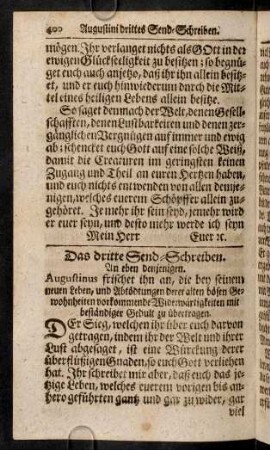 400 Augustini drittes Send-Schreiben.
mögen. Ihr verlanget nichts als GOtt in der
ewigen Glückseeligkeit zu besitzen; so begnü-
get euch auch anjetzo, daß ihr ihn allein besitz-
et, und er euch hinwiederum durch die Mit-
tel eines heiligen Lebens allein besitze.
So saget dennach der Welt, denen Gesell-
schafften, denen Lustbarkeiten und denen zer-
gänglichen Vergnügen auf immer und ewig
ab; schencket euch Gott auf eine solche Weiß,
damit die Creaturen im geringsten keinen
Zugang und Theil an euren Hertzen haben,
und euch nichts entwenden von allen demje-
nigen, welches euerem Schöpffer allein zu-
gehöret. Je mehr ihr sein seyd, jemehr wird
er euer seyn, und desto mehr werde ich seyn
Mein Herr Euer ꝛc.
Das dritte Send-Schreiben.
An eben denjenigen.
Augustinus frischet ihn an, die bey seinem
neuen Leben, und Abtödtungen derer alten bösen Ge-
wohnheiten vorkommende Widerwärtigkeiten mit
beständiger Gedult zu übertragen.
DEr Sieg, welchen ihr über euch darvon
getragen, indem ihr der Welt und ihrer
Lust abgesaget, ist eine Würckung derer
überflüßigen Gnaden, so euch Gott verliehen
hat. Ihr schreibet mir aber, daß euch das je-
tzige Leben, welches euerem vorigen bis an-
hero geführten gantz und gar zu wider, gar
viel